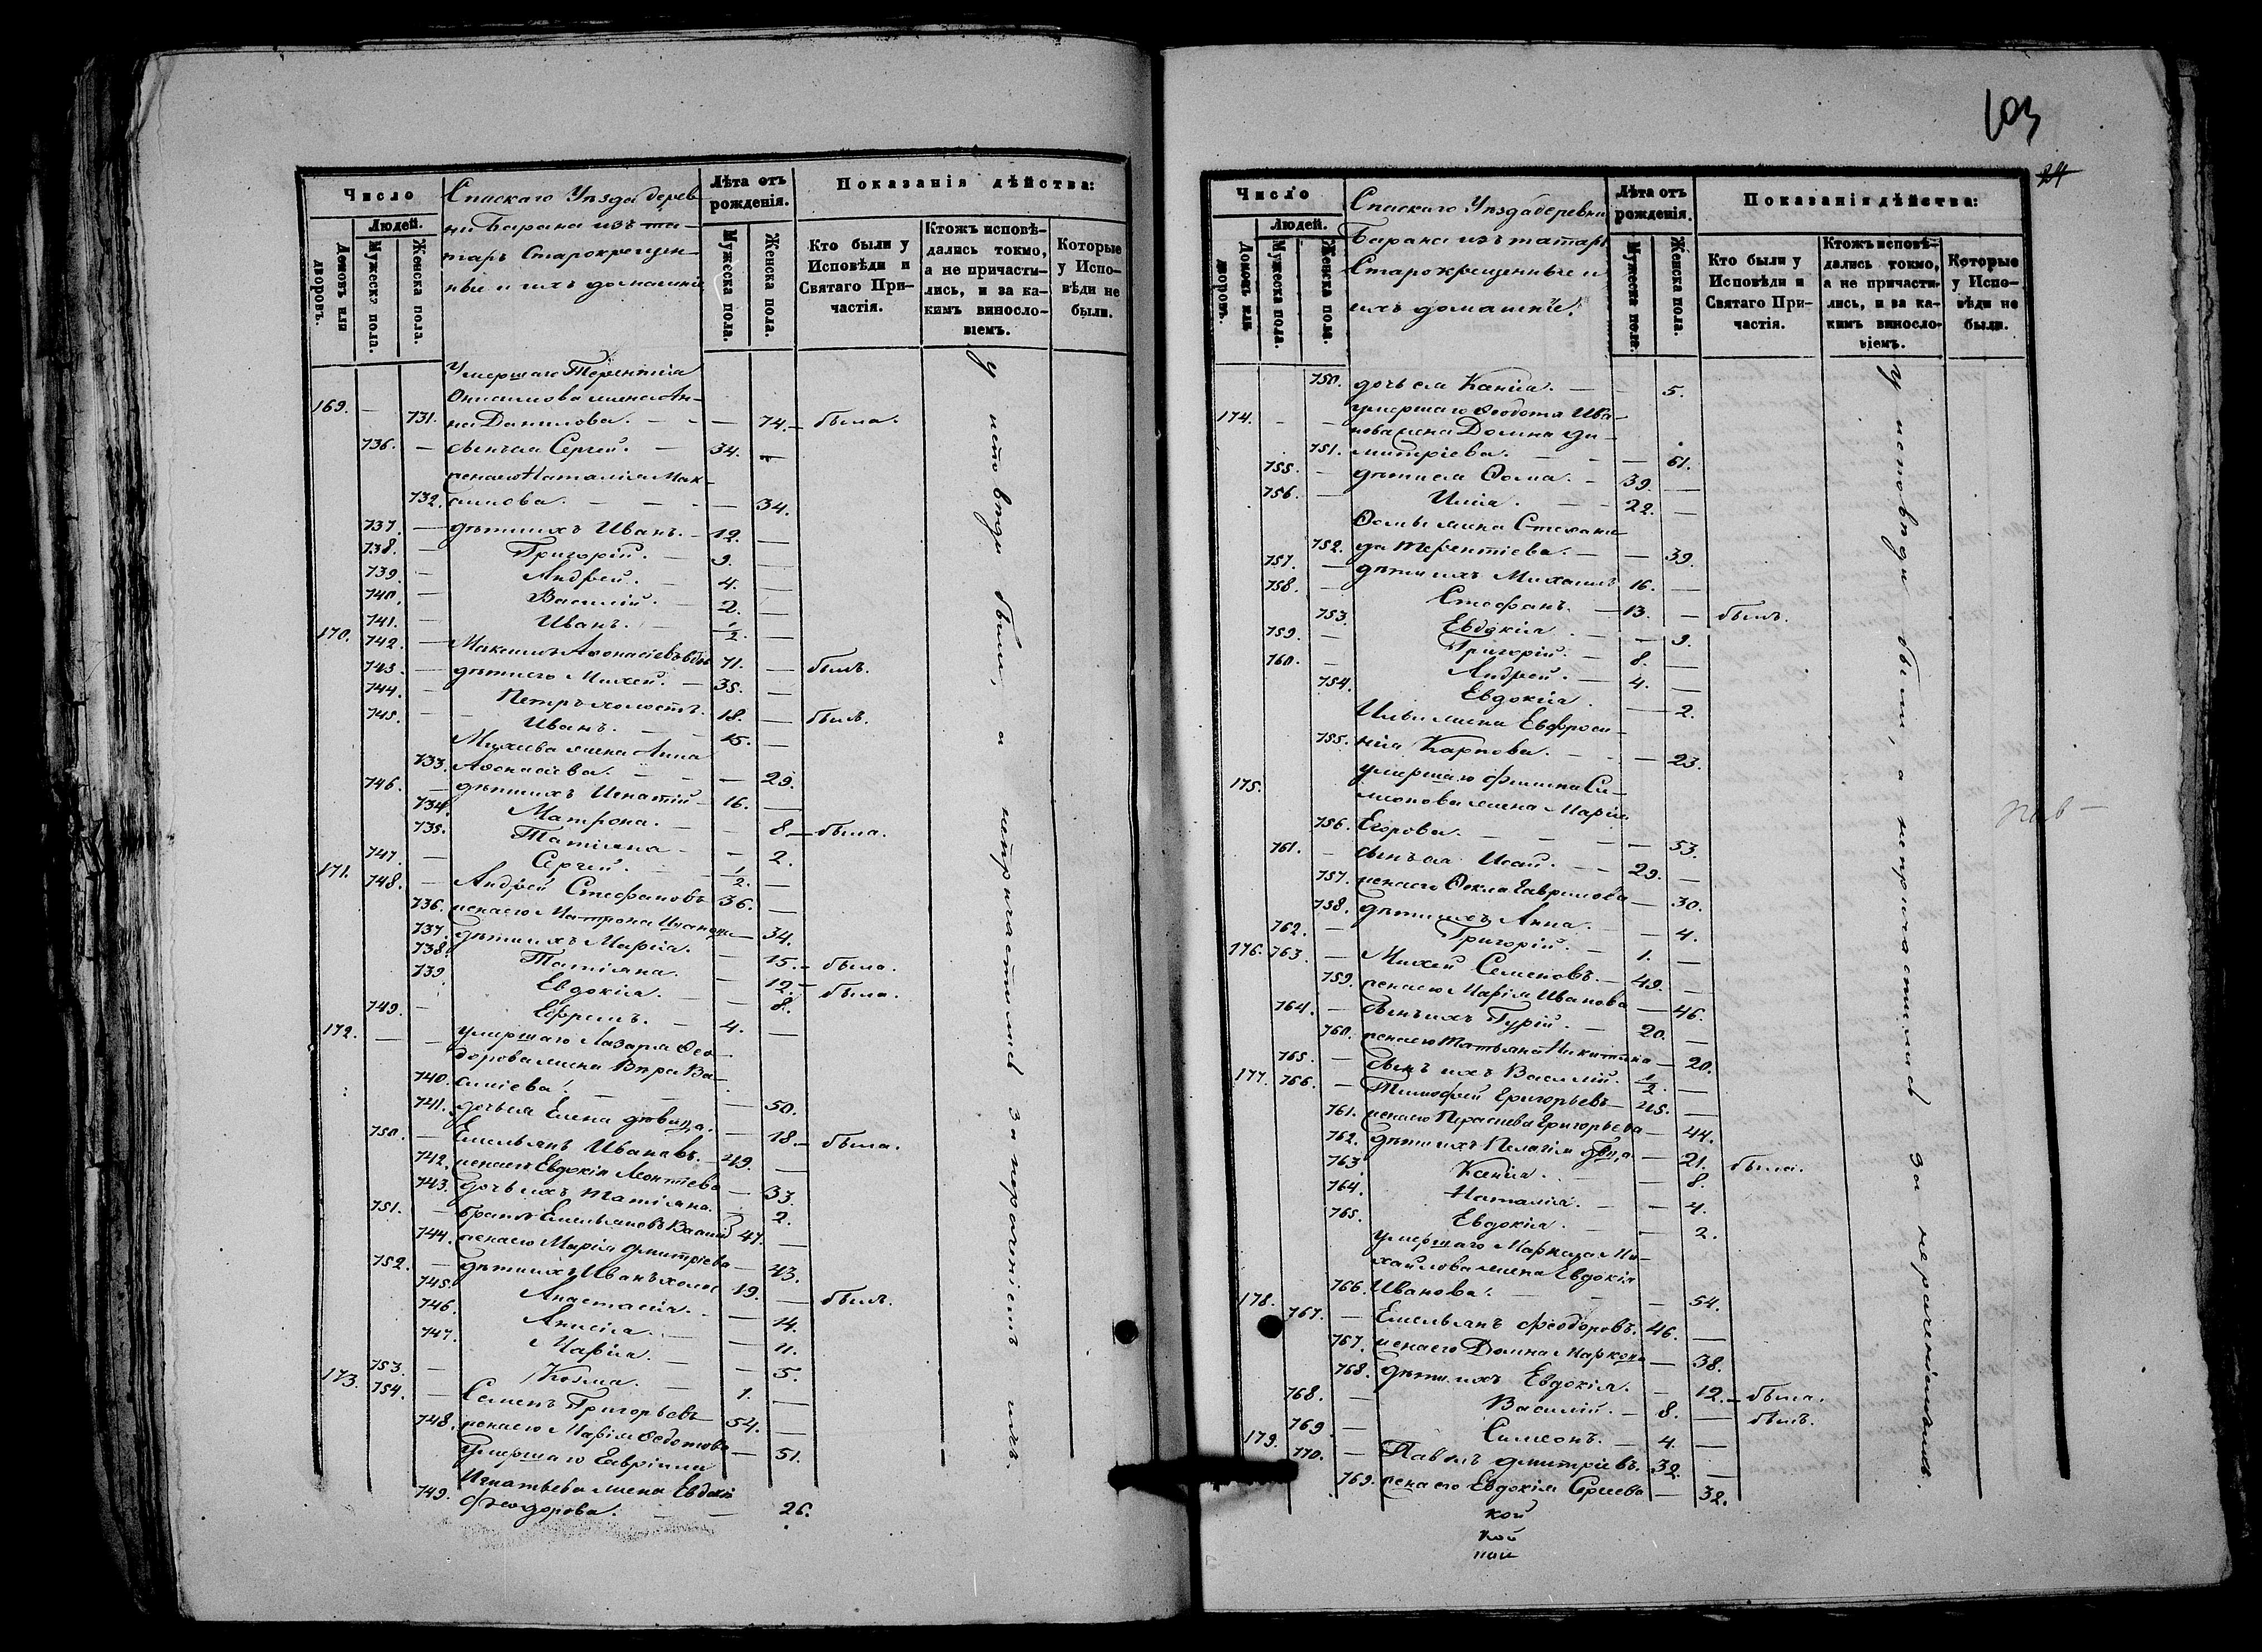 Число
Людей.
Домовъ или дворовъ.
Мужеска пола.
Женска пола.
Спаскаго Уѣзда дерев-
ни Барана изъ та-
таръ Старокрещен-
ные и ихъ домашніе
Лѣта отъ рожденія.
Мужеска пола.
Женска пола.
Показанія дѣйства:
Кто были у Исповѣди и Святаго При-частія.
Ктожъ исповѣ-дались токмо, а не причасти-лись, и за ка-кимъ винослo-віемъ.
Которые у Испо-вѣди не были.
Умершаго Терентія
169. — жена Ан-
731. на Данилова. — — 74. — была.
736. — сынъ ея Сергей. — 34. —
жена его Наталія Мак-
732. симова. — — 34.
737. — дѣти ихъ Иванъ. — 12. —
738. — Григорій. — 9. —
739. — Андрей. — 4. —
740. — Василій. — 2. —
741. — Иванъ. — 1/2. —
170. 742. — Максимъ Аѳонасіевъ 71. — былъ.
743. — дѣти его Михей. — 35. —
744. — Петръ холостъ. 18. — былъ.
745. — Иванъ. — 15. —
Михеева жена Анна
733. Аѳонасіева. — — 29.
746. — дѣти ихъ Игнатій — 16. —
734. Матрона. — — 8 — была.
735. Татіяна — — 2.
747. — Сергей. — 1/2. —
171. 748. — Андрей Стефановъ 36. —
736. жена его Матрона — 34.
737. дѣти ихъ Марія. — 15. — была.
738. Татіяна. — 12. — была.
739. Евдокія. — — 8.
749. — Ефремъ. — 4. —
172. — — умершаго Лазаря Ѳео-
дорова жена Вѣра Ва-
740. силіева. — — 50.
741. дочь ея Елена дѣвица. — 18. — была.
750. — Емельянъ Ивановъ. — 49. —
742. жена его Евдокія Леонтіева — 33.
743. дочь ихъ Татіяна. — 2.
751. — братъ Емельяновъ Василій 47. —
744. жена его Марія Дмитріева — 43.
752. — дѣти ихъ Иванъ холос 19. — былъ.
745. Анастасія. — — 14.
746. Анисія. — — 11.
747. Марія. — — 5.
753. — Козма. — 1. —
173. 754. — Семенъ Григорьевъ 54. —
748. жена его Марія Ѳедотова — 51.
Умершаго Гавріила
Игнатьева жена Евдокія
749. Ѳеодорова. — — 26.
у исповѣди были, а непричастились за нераченіемъ ихъ.
103
24
Число
Людей.
Домовъ или дворовъ.
Мужеска пола.
Женска пола.
Спаскаго Уѣзда деревни
Барана изъ татаръ
Старокрещенные и
ихъ домашніе.
Лѣта отъ рожденія.
Мужеска пола.
Женска пола.
Показанія дѣйства:
Кто были у Исповѣди и Святаго При-частія.
Ктожъ исповѣ-дались токмо, а не причасти-лись, и за ка-кимъ винослo-віемъ.
Которые у Испо-вѣди не были.
750. дочь ея Ксенія. — — 5.
174. — — умершаго Ѳеодота Ива-
нова жена Домна Ди-
751. митріева. — — 61.
755. — дѣти ея Ѳома. — 39. —
756. — Илія. — 22. —
Ѳомы жена Степани-
752. да Терентіева. — — 39.
757. — дѣти ихъ Михаилъ 16. —
758. — Стефанъ. — 13. — былъ.
753. Евдокія. — — 9.
759. — Григорій. — 8. —
760. — Андрей. — 4. —
754. Евдокія. — 2.
Ильи жена Евфроси-
755. нія Карпова. — — 23.
175. умершаго Филипа Си-
меонова жена Марія
756. Егорова. — — 53.
761. — сынъ ея Исай. — 29. —
757. жена его Ѳекла Гаврилова — 30.
758. дѣти ихъ Анна. — — 4.
762. — Григорій. — 1. —
176. 763. — Михей Семеновъ. — 49. —
759. жена его Марія Иванова — 46.
764. — сынъ ихъ Гурій. — 20. —
760. жена его Татьяна Никитина — 20.
765. — сынъ ихъ Василій. 1/2. —
177. 766. — Тимофей Григорьевъ 45. —
761. жена его Параскева Григорьева — 44.
762. дѣти ихъ Пелагія двца — 21. была.
763. Ксенія. — — 8.
764. Наталія. — — 4.
765. Евдокія. — — 2.
умершаго Маркела Ми-
хайлова жена Евдокія
766. Иванова. — — 54.
178. 767. — Емельянъ Ѳеодоровъ. 46. —
767. жена его Домна Маркова — 38.
768. дѣти ихъ Евдокія. — 12. — была.
768. — Василій. — 8. — былъ.
769 — Симеонъ. — 4. —
179. 770. — Павелъ Дмитріевъ. 32. —
769. жена его Евдокія Сергеева — 32.
у исповѣди были, а непричастились за нераченіемъ.
кой
кой